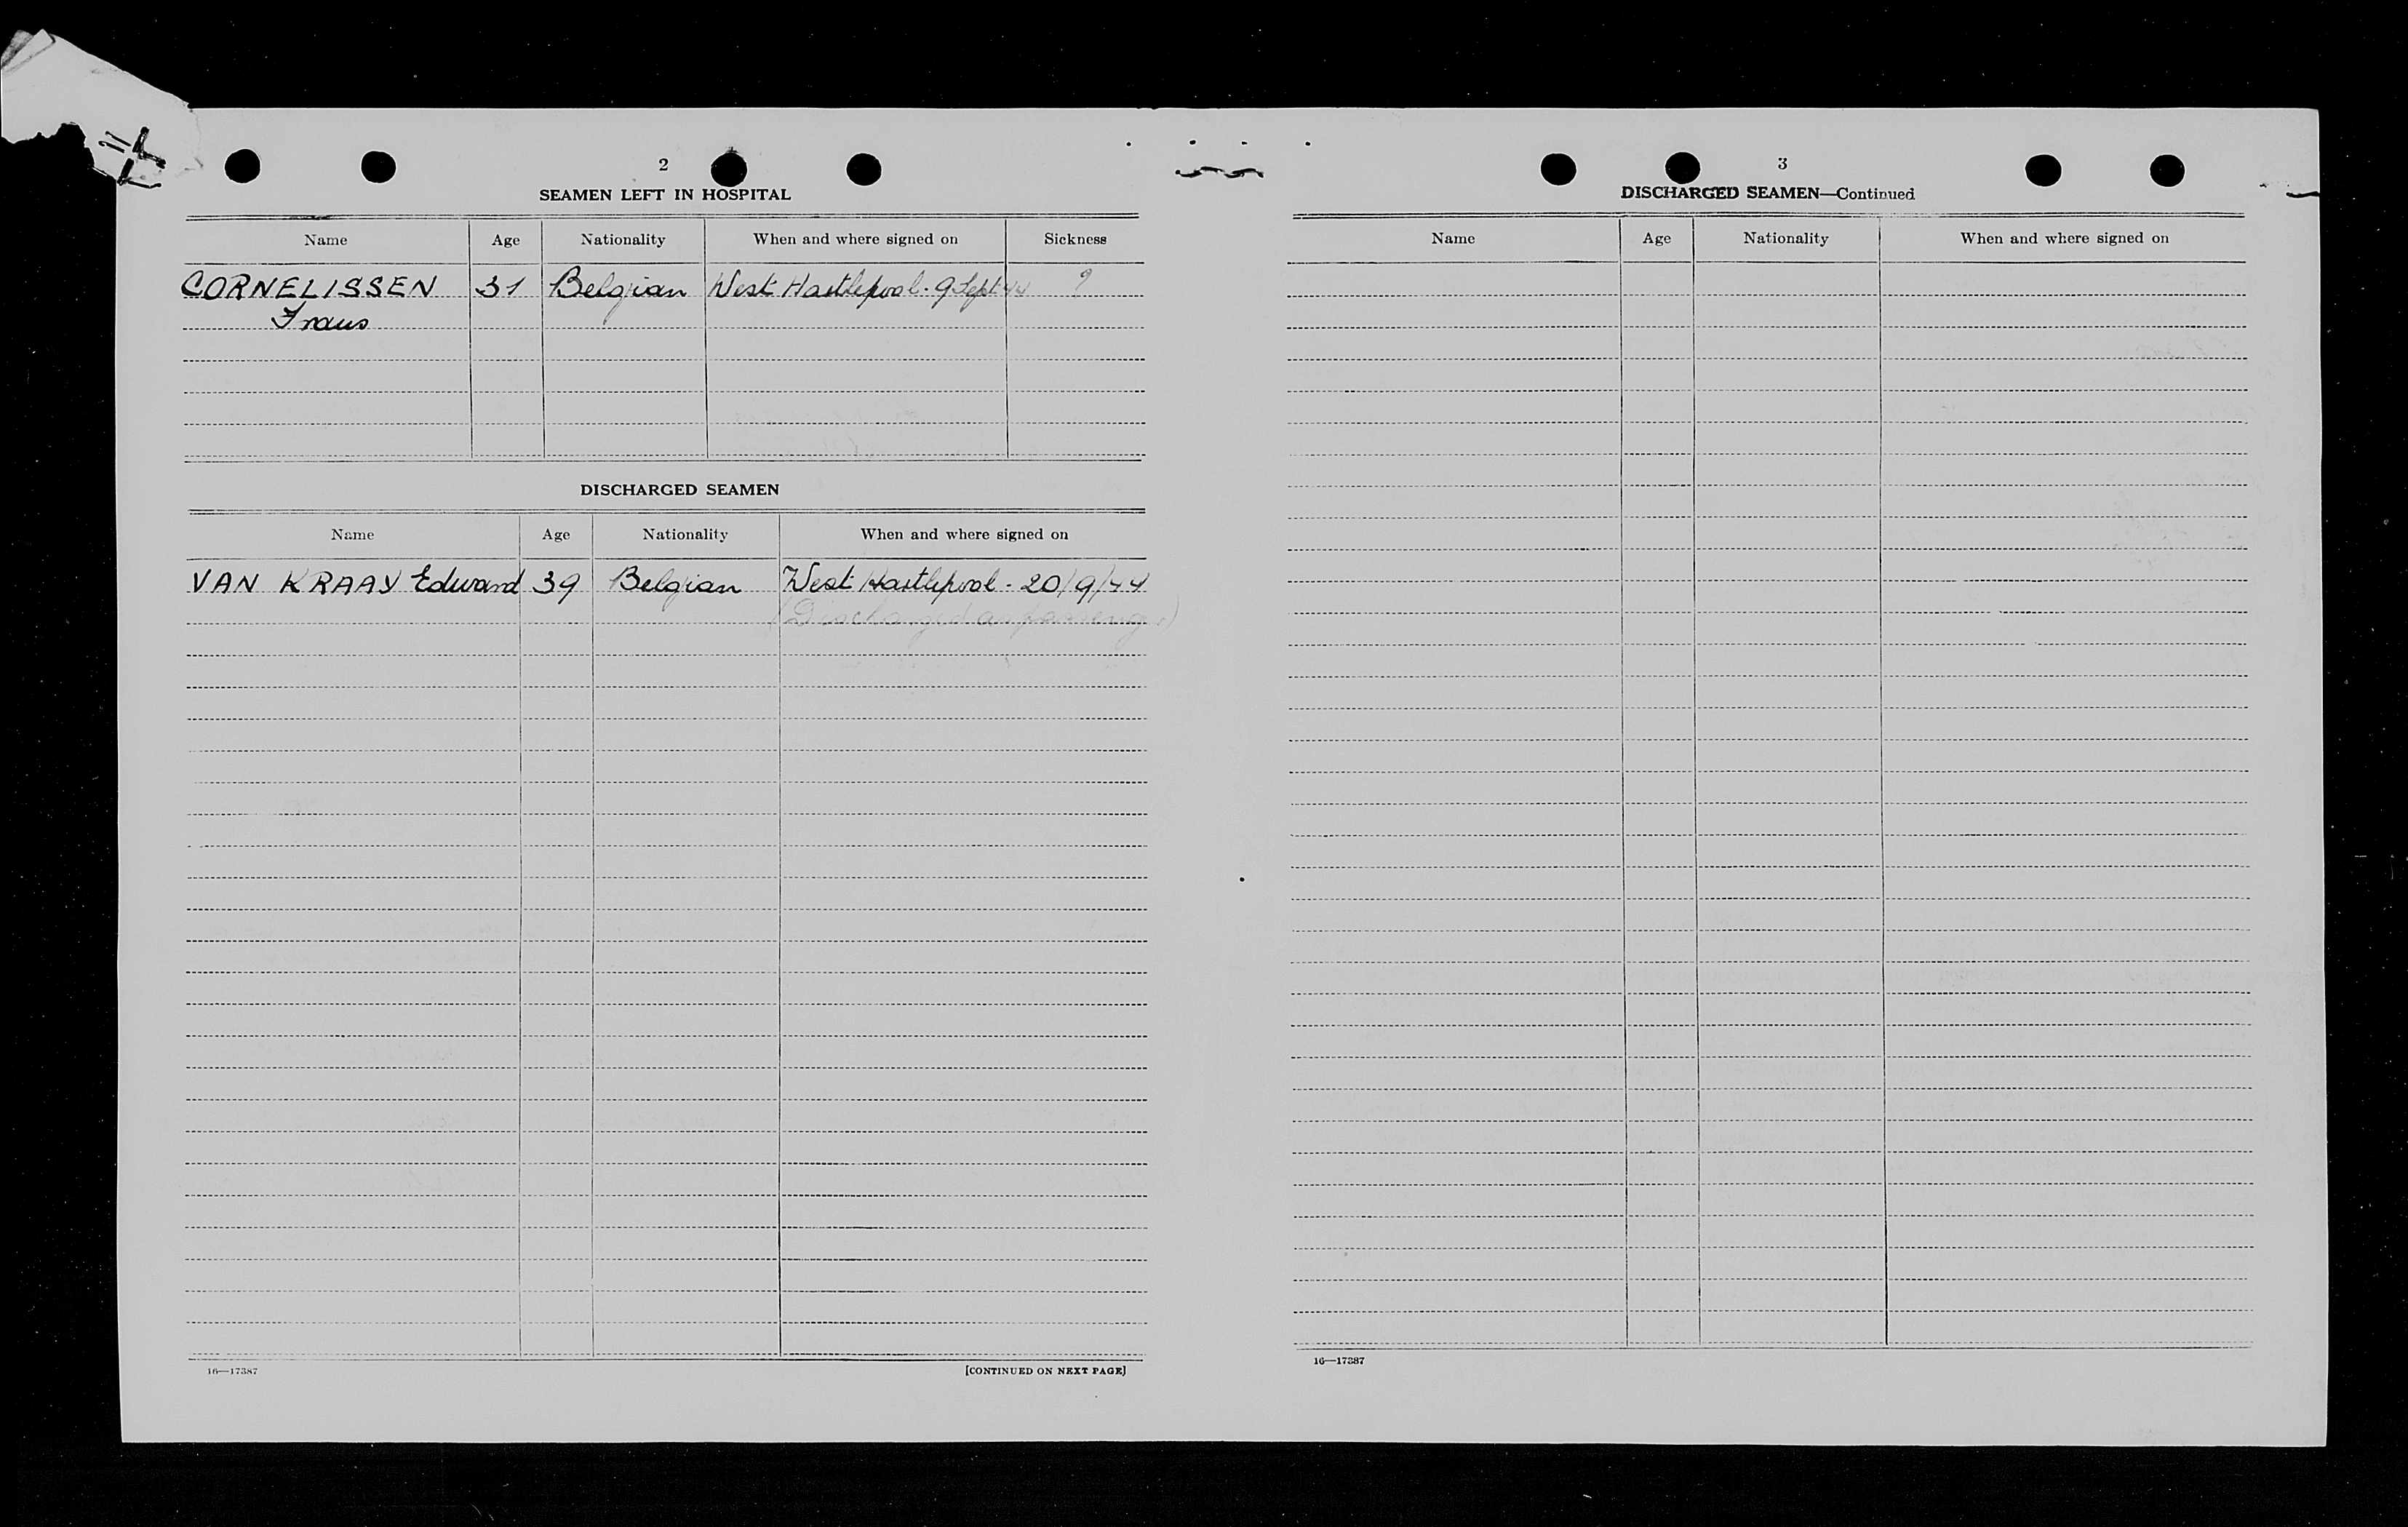 2
SEAMEN LEFT IN HOSPITAL
Name Age Nationality When and where signed on Sickness
CORNELISSEN 31 Belgian West Hartlepool - 9 Sept 44 ?
Frans
DISCHARGED SEAMEN
Name Age Nationality When and where signed on
VAN KRAAY Edward 39 Belgian West Hartlepool - 20/9/44
(Discharged as passenger)
16—17387 [CONTINUED ON NEXT PAGE]
3
DISCHARGED SEAMEN—Continued
Name Age Nationality When and where signed on
16—17387